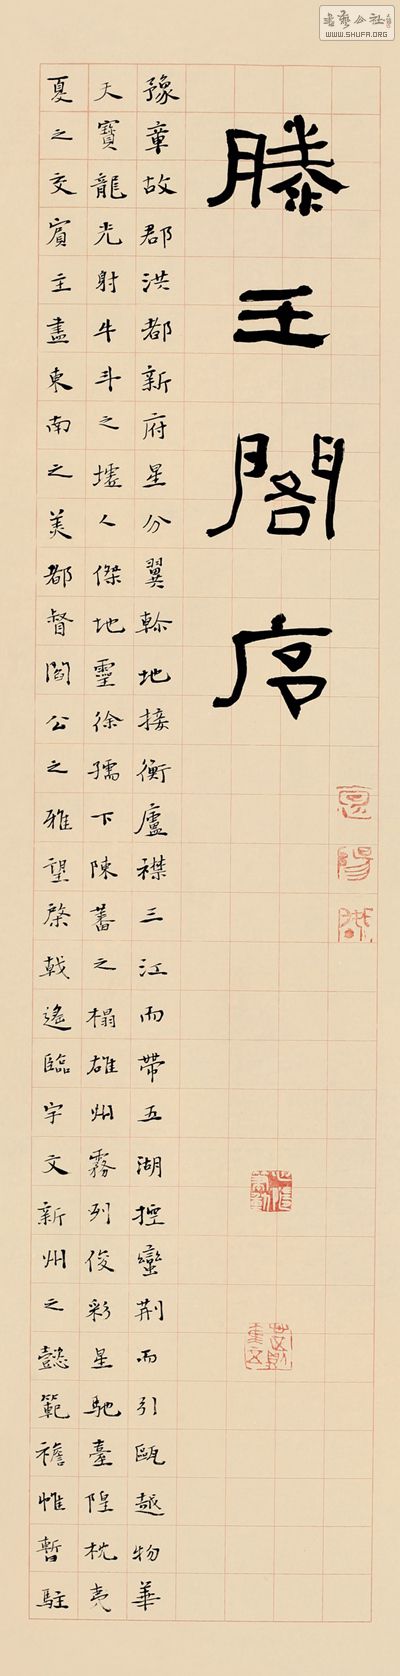 書藝公社
WWW.SHUFA.ORG
滕王閣序
豫章故郡洪都新府星分翼軫地接衡廬襟三江而帶五湖控蠻荊而引甌越物華
天寶龍光射牛斗之墟人傑地靈徐孺下陳蕃之榻雄州霧列俊彩星馳臺隍枕夷
夏之交賓主盡東南之美都督閻公之雅望棨戟遙臨宇文新州之懿範襜帷暫駐